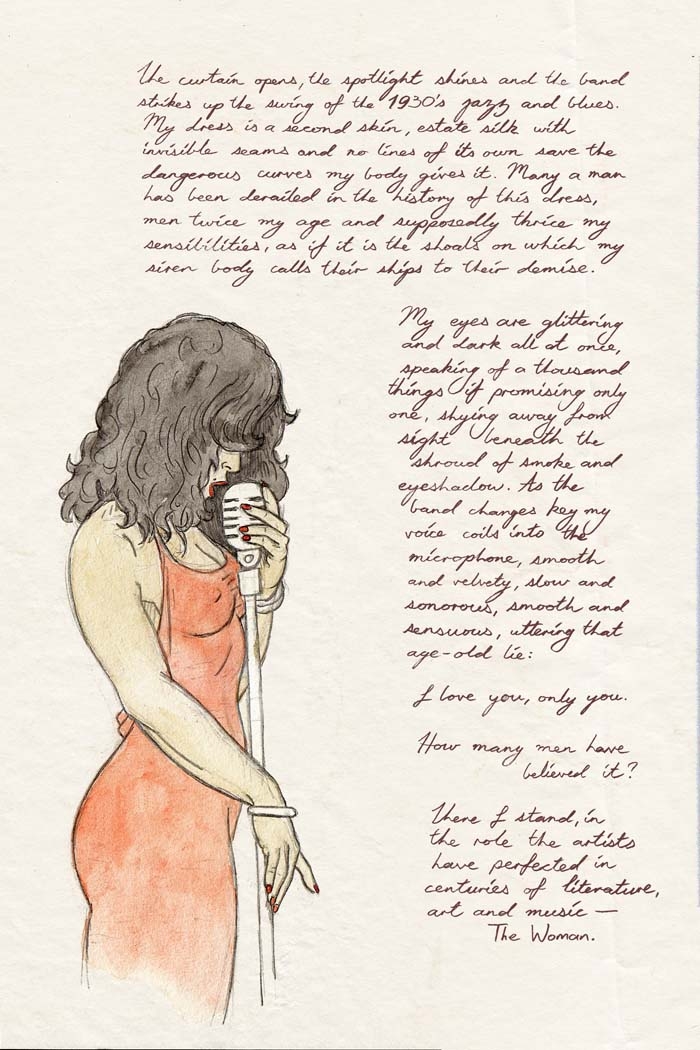 The curtain opens, the spotlight shines and the band
strikes up the swing of the 1930's jazz and blues.
My dress is a second skin, estate silk with
invisible seams and no lines of its own save the
dangerous curves my body gives it. Many a man
has been derailed in the history of this dress,
men twice my age and supposedly thrice my
sensibilities, as if it is the shoals on which my
siren body calls their ships to their demise.
My eyes are glittering
and dark all at once,
speaking of a thousand
things if promising only
one, shying away from
sight beneath the
shroud of smoke and
eyeshadow. As the
band changes key my
voice coils into the
microphone, smooth
and velvety, slow and
sonorous, smooth and
sensuous, uttering that
age-old lie:
I love you, only you.
How many men have
believed it?
There I stand, in
the role the artists
have perfected in
centuries of literature,
art and music —
The Woman.